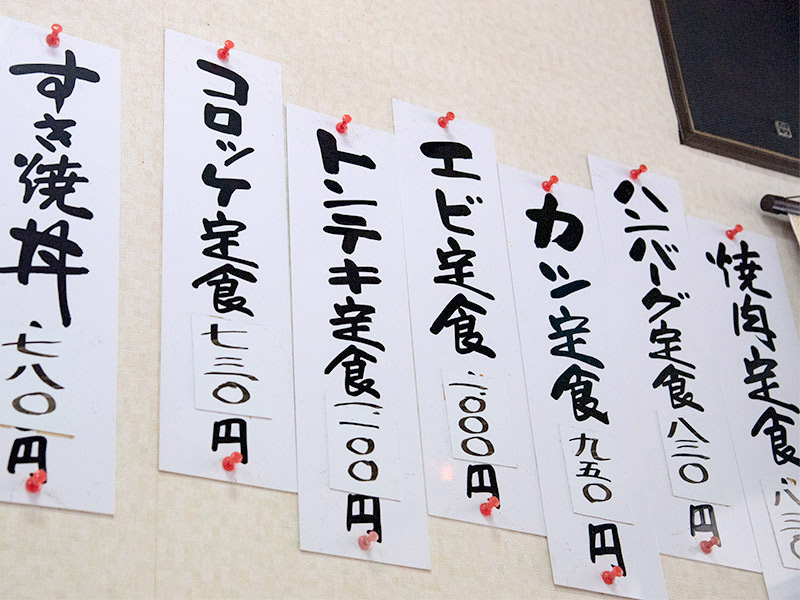 焼肉定食 八三〇
ハンバーグ定食 八三〇円
カツ定食 九五〇円
エビ定食 一、〇〇〇円
トンテキ定食 一、一〇〇円
コロッケ定食 七三〇円
すき焼丼 七八〇円